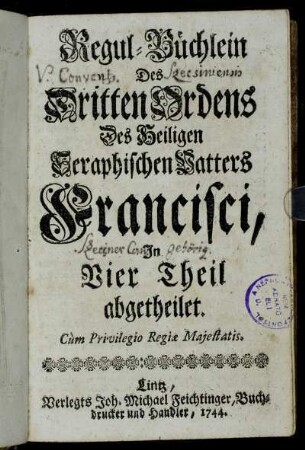 Regul-Büchlein
Des
V. Convent.
Dritten Ordens
Des Heiligen
Seraphischen Vatters
Francisci,
In
gehörig
Vier Theil
abgetheilet.
Cùm Privilegio Regiæ Majestatis.
Lintz,
Verlegts Joh. Michael Feichtinger, Buch-
drucker und Handler, 1744.